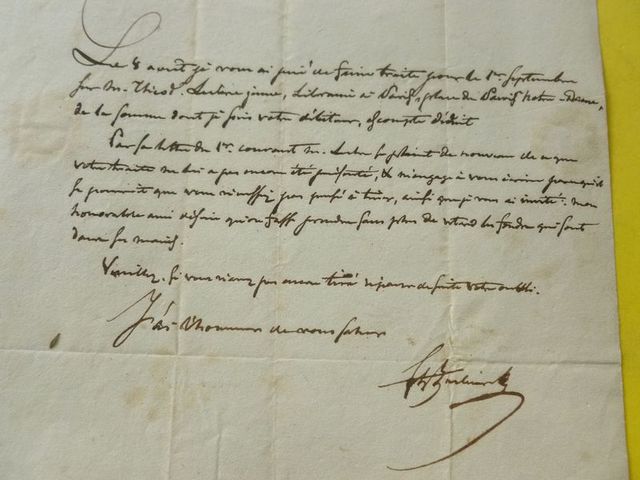 Le 8 août je vous ai prié de faire traite pour le 1er septembre
sur M. Théod. Leclerc jeune, Libraire à Paris, place du Parvis Notre-Dame,
de la somme dont je suis votre débiteur, escompte déduit
Par sa lettre du 1er courant M. Leclerc se plaint de nouveau de ce que
votre traite ne lui a pas encore été présentée, & m'engage à vous écrire parce qu'il
se pourrait que vous n'eussiez pas pensé à tirer, ainsi que je vous ai invité: mon
honorable ami désire qu'on fasse prendre sans plus de retard les fonds qui sont
dans ses mains.
Veuillez, si vous n'avez pas encore tiré réparer de suite votre oubli.
J'ai l'honneur de vous saluer